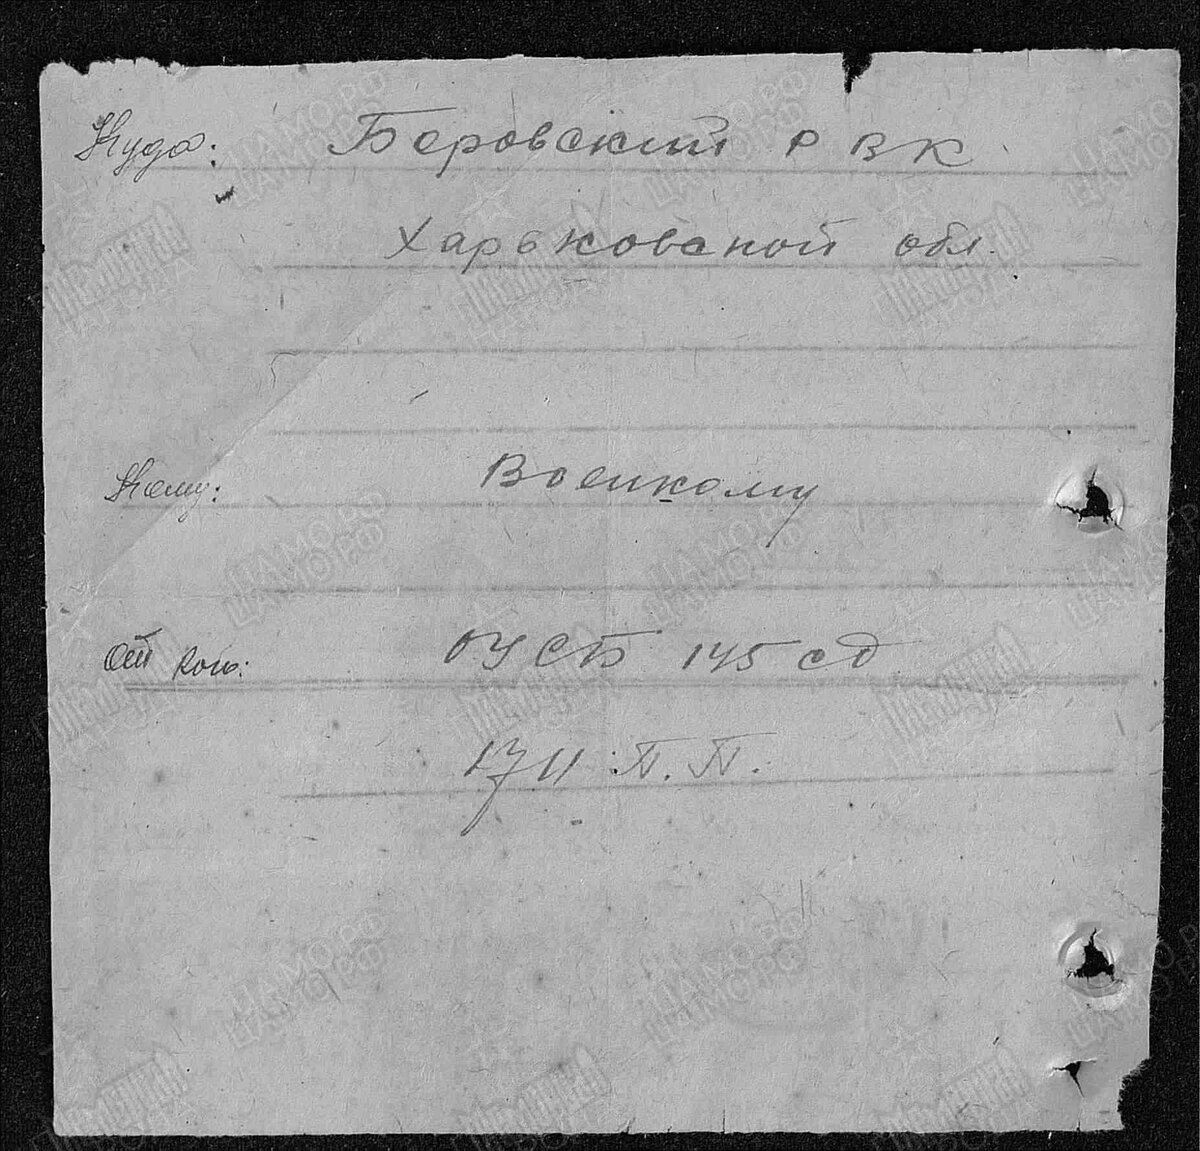 Куда: Беровский РВК
Харьковской обл.
Кому: Военкому
От кого: ОУСБ 145 сд
1711 П.П.
ЦАМО.РФ
ПАМЯТЬ НАРОДА